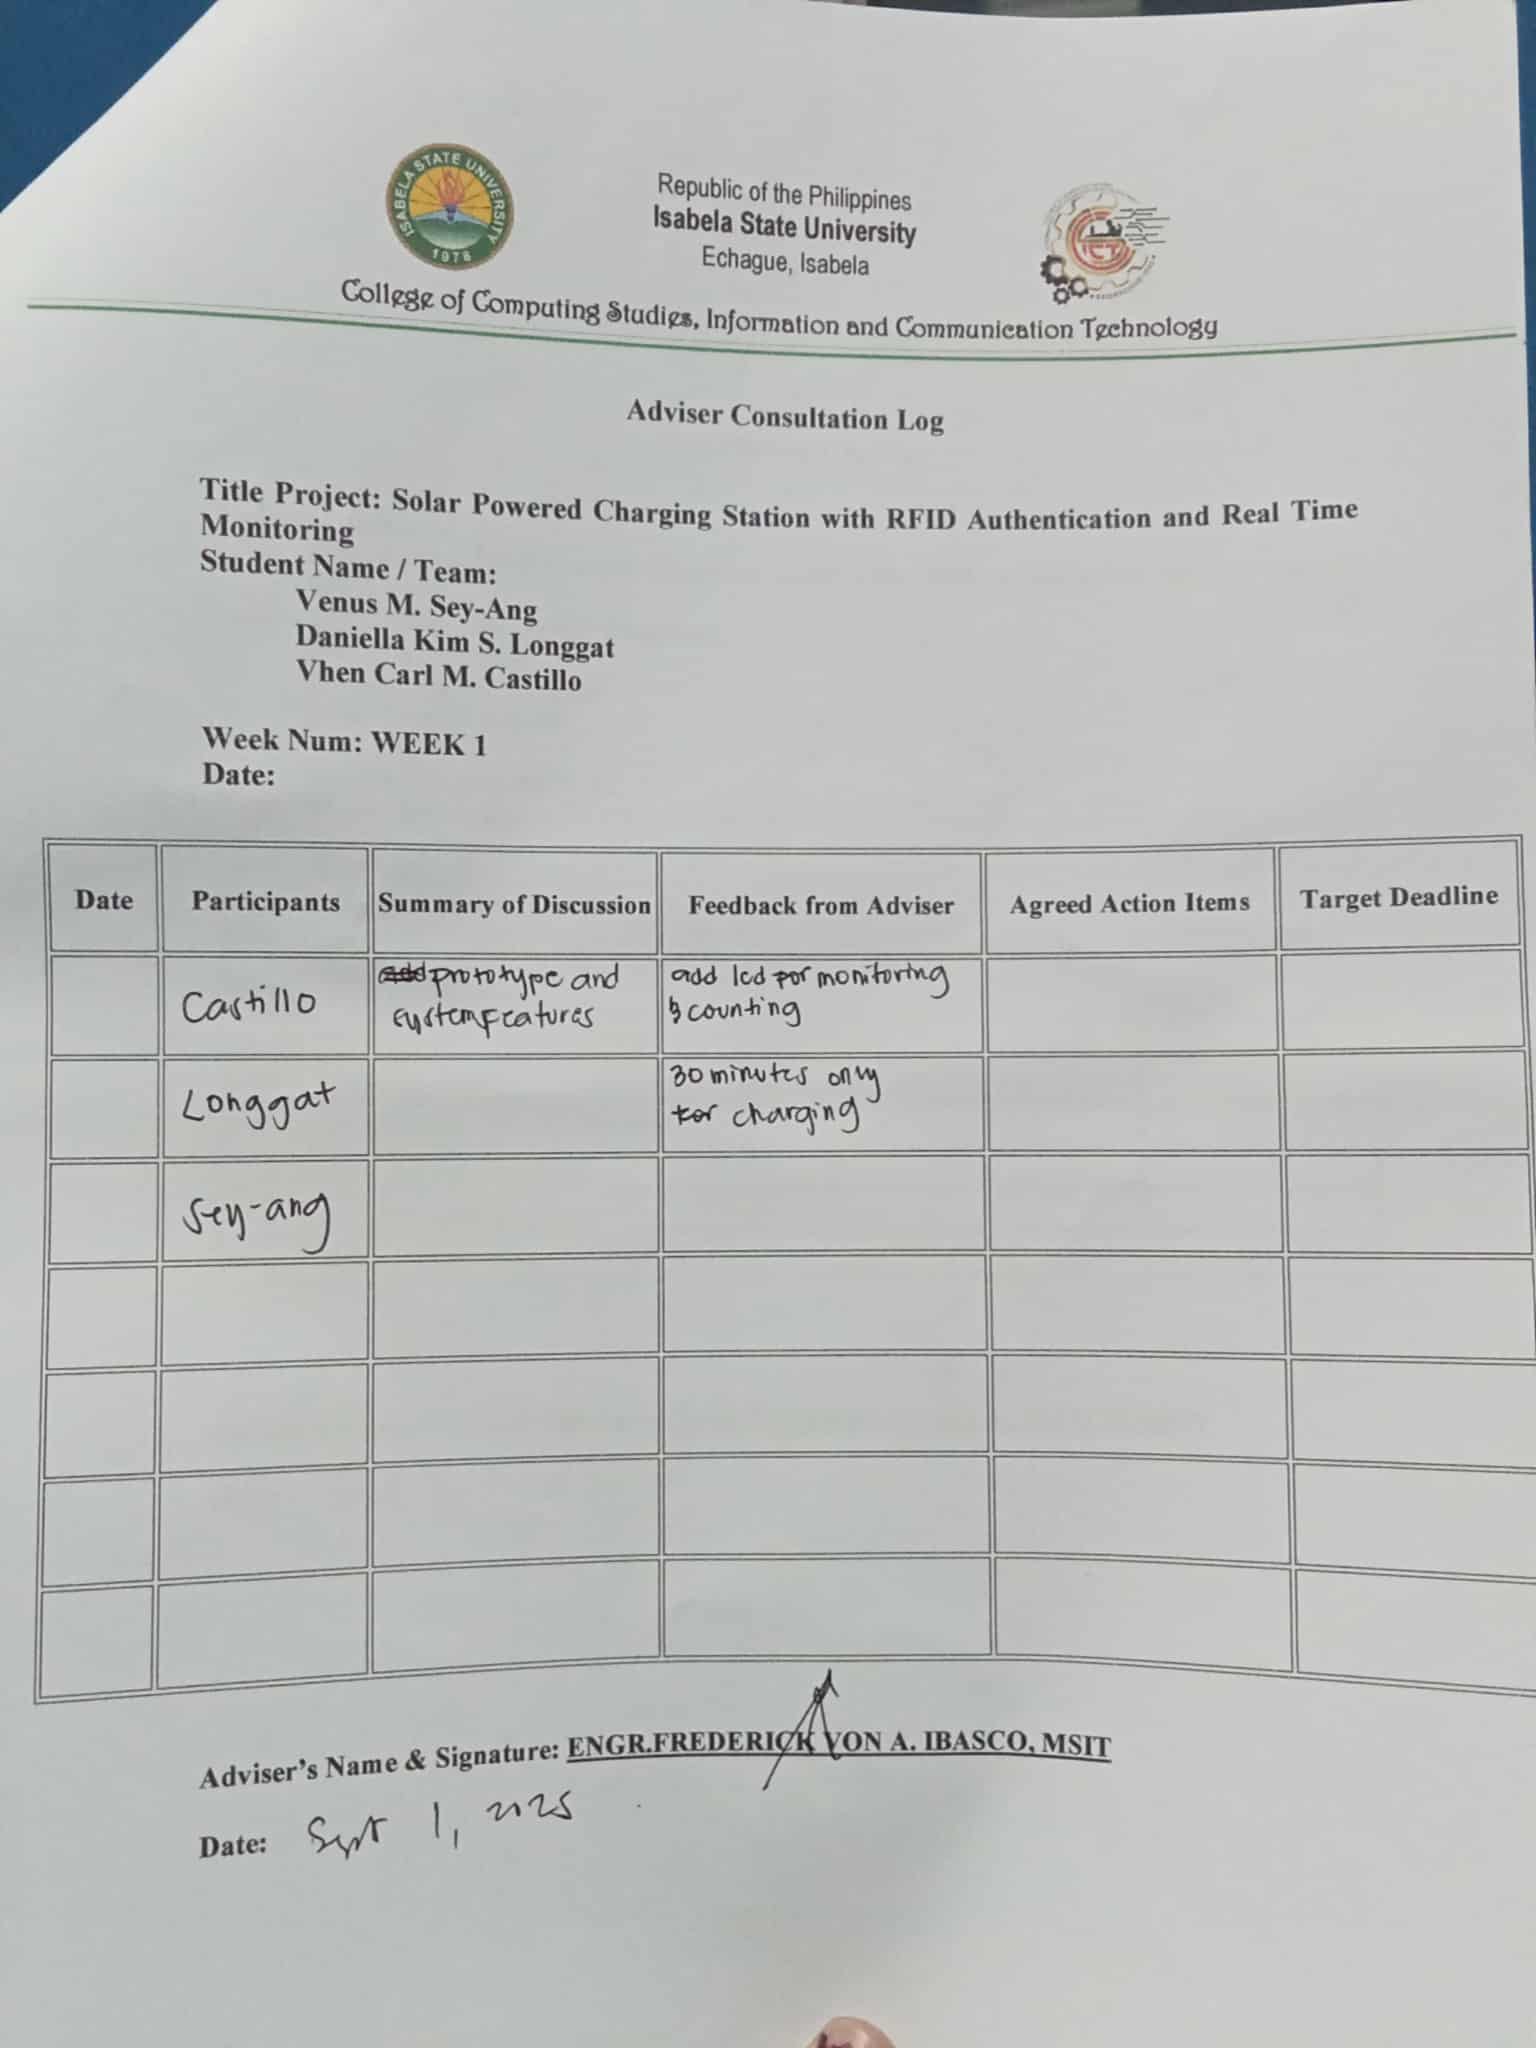 ISABELA STATE UNIVERSITY
1978
Republic of the Philippines
Isabela State University
Echague, Isabela
ICT
College of Computing Studies, Information and Communication Technology
Adviser Consultation Log
Title Project: Solar Powered Charging Station with RFID Authentication and Real Time
Monitoring
Student Name / Team:
Venus M. Sey-Ang
Daniella Kim S. Longgat
Vhen Carl M. Castillo
Week Num: WEEK 1
Date:
Date Participants Summary of Discussion Feedback from Adviser Agreed Action Items Target Deadline
Castillo
prototype and
system features
add lcd for monitoring
& counting
Longgat
30 minutes only
for charging
Sey-ang
Adviser's Name & Signature: ENGR.FREDERICK VON A. IBASCO, MSIT
Date: Sept 1, 2025